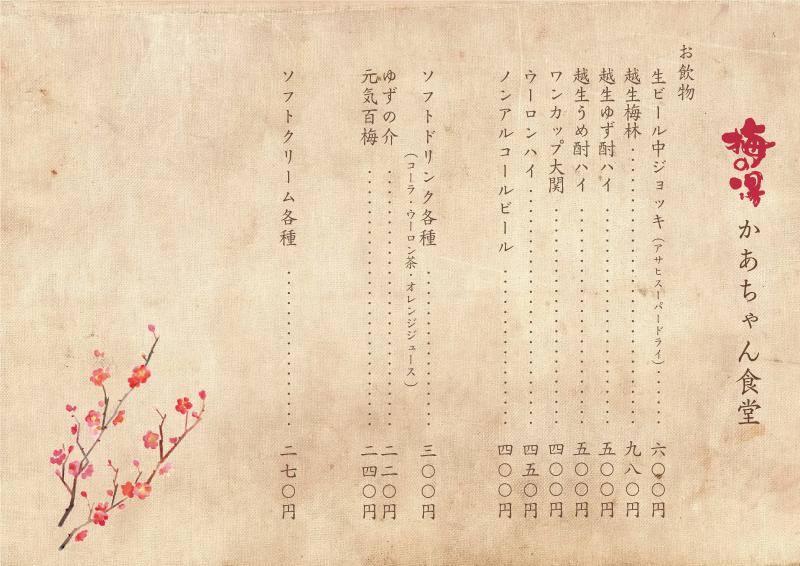 梅の湯 かあちゃん食堂
お飲物
生ビール中ジョッキ（アサヒスーパードライ）・・・・・・六〇〇円
越生梅林・・・・・・・・・・・・・・・・・・九八〇円
越生ゆず酎ハイ・・・・・・・・・・・・・・・五〇〇円
越生うめ酎ハイ・・・・・・・・・・・・・・・五〇〇円
ワンカップ大関・・・・・・・・・・・・・・・四〇〇円
ウーロンハイ・・・・・・・・・・・・・・・・四五〇円
ノンアルコールビール・・・・・・・・・・・四〇〇円
ソフトドリンク各種・・・・・・・・・・・・三〇〇円
（コーラ・ウーロン茶・オレンジジュース）
ゆずの介・・・・・・・・・・・・・・・・・二二〇円
元気百梅・・・・・・・・・・・・・・・・・二四〇円
ソフトクリーム各種・・・・・・・・・・・・二七〇円